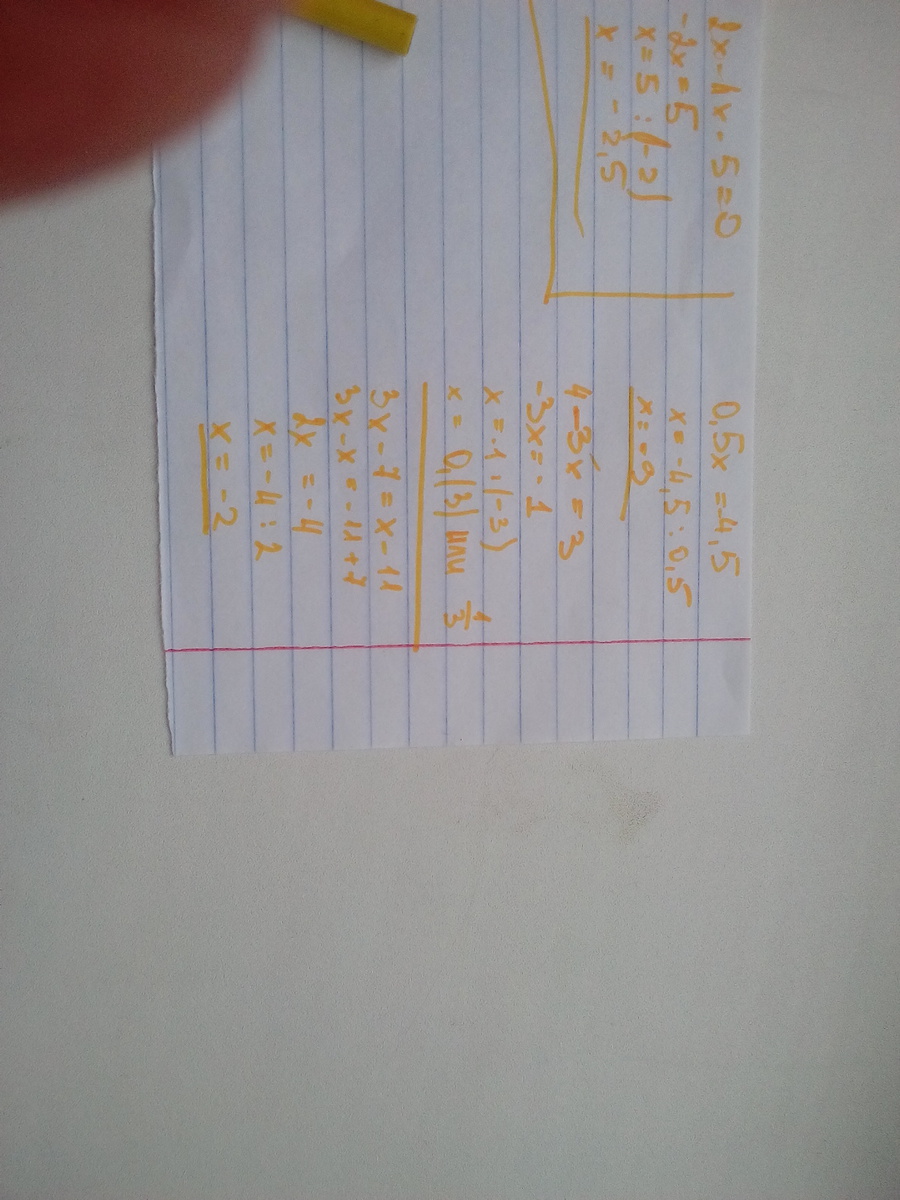 2x-4x-5=0
-2x=5
x=5:(-2)
x=-2,5
0,5x=-4,5
x=-4,5:0,5
x=-9
4-3x=3
-3x=-1
x=-1:(-3)
x=0,(3) или 1/3
3x-7=x-11
3x-x=-11+7
2x=-4
x=-4:2
x=-2